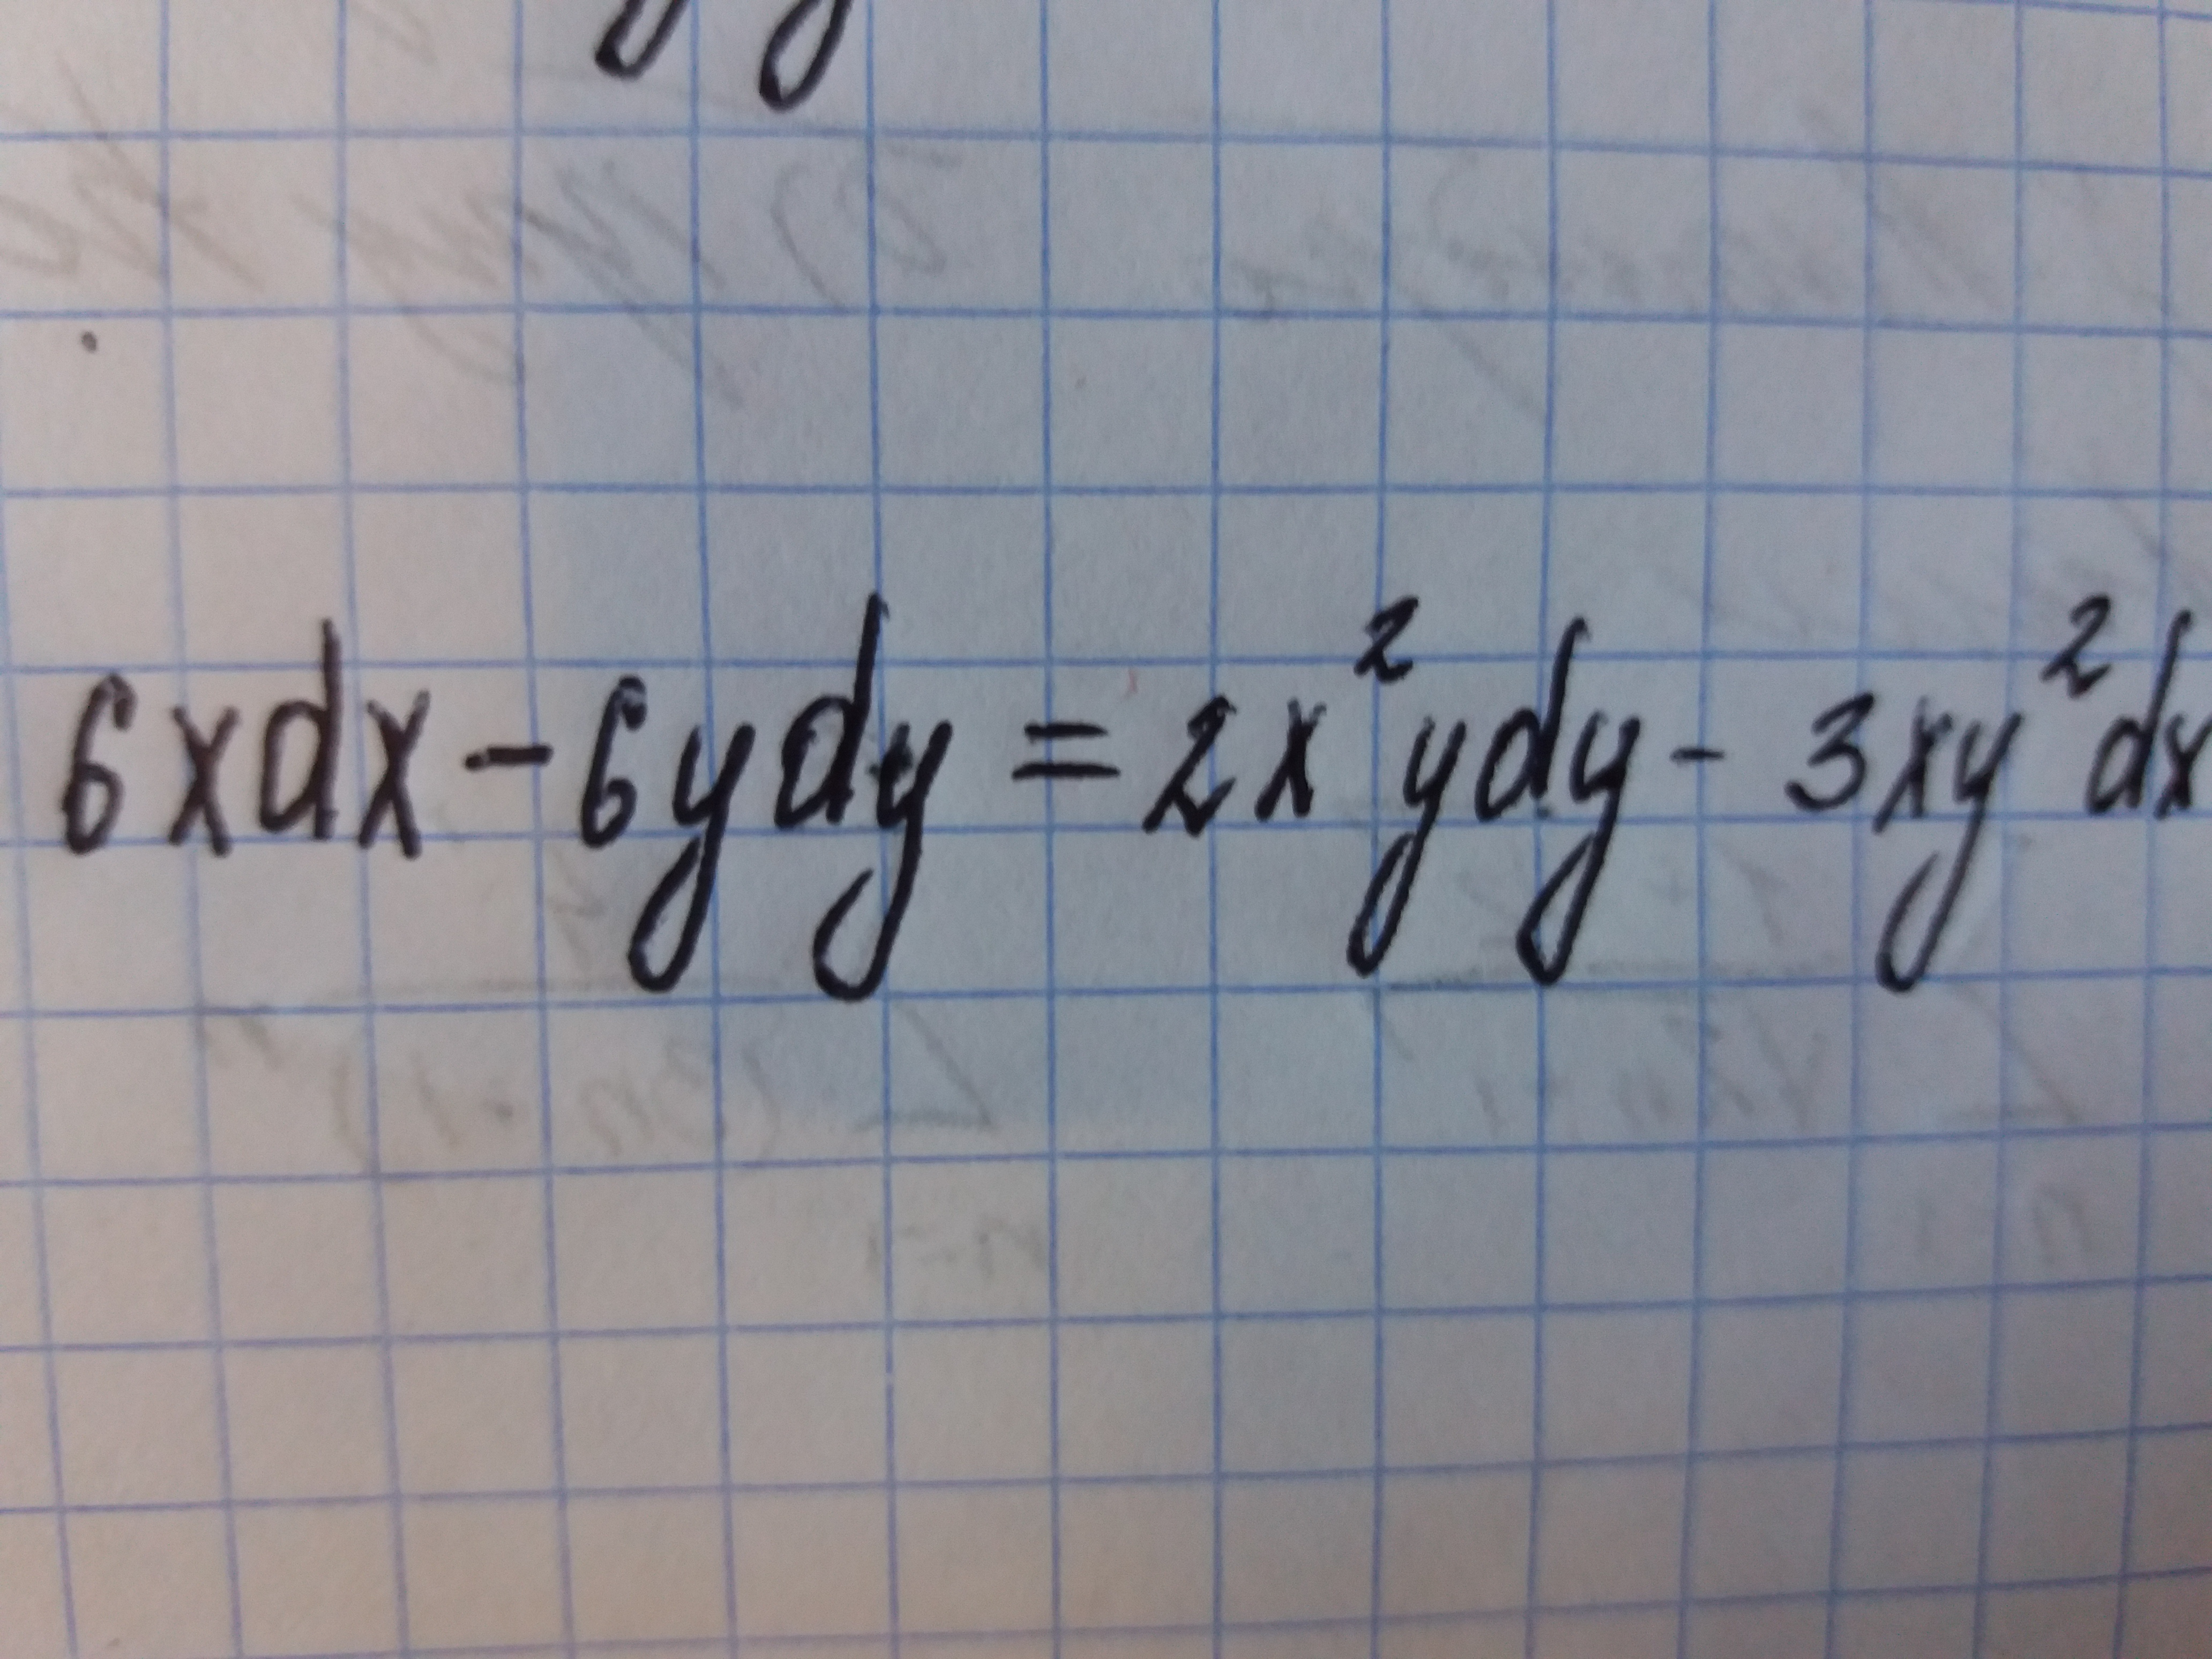 6xdx - 6ydy = 2x²ydy - 3xy²dx